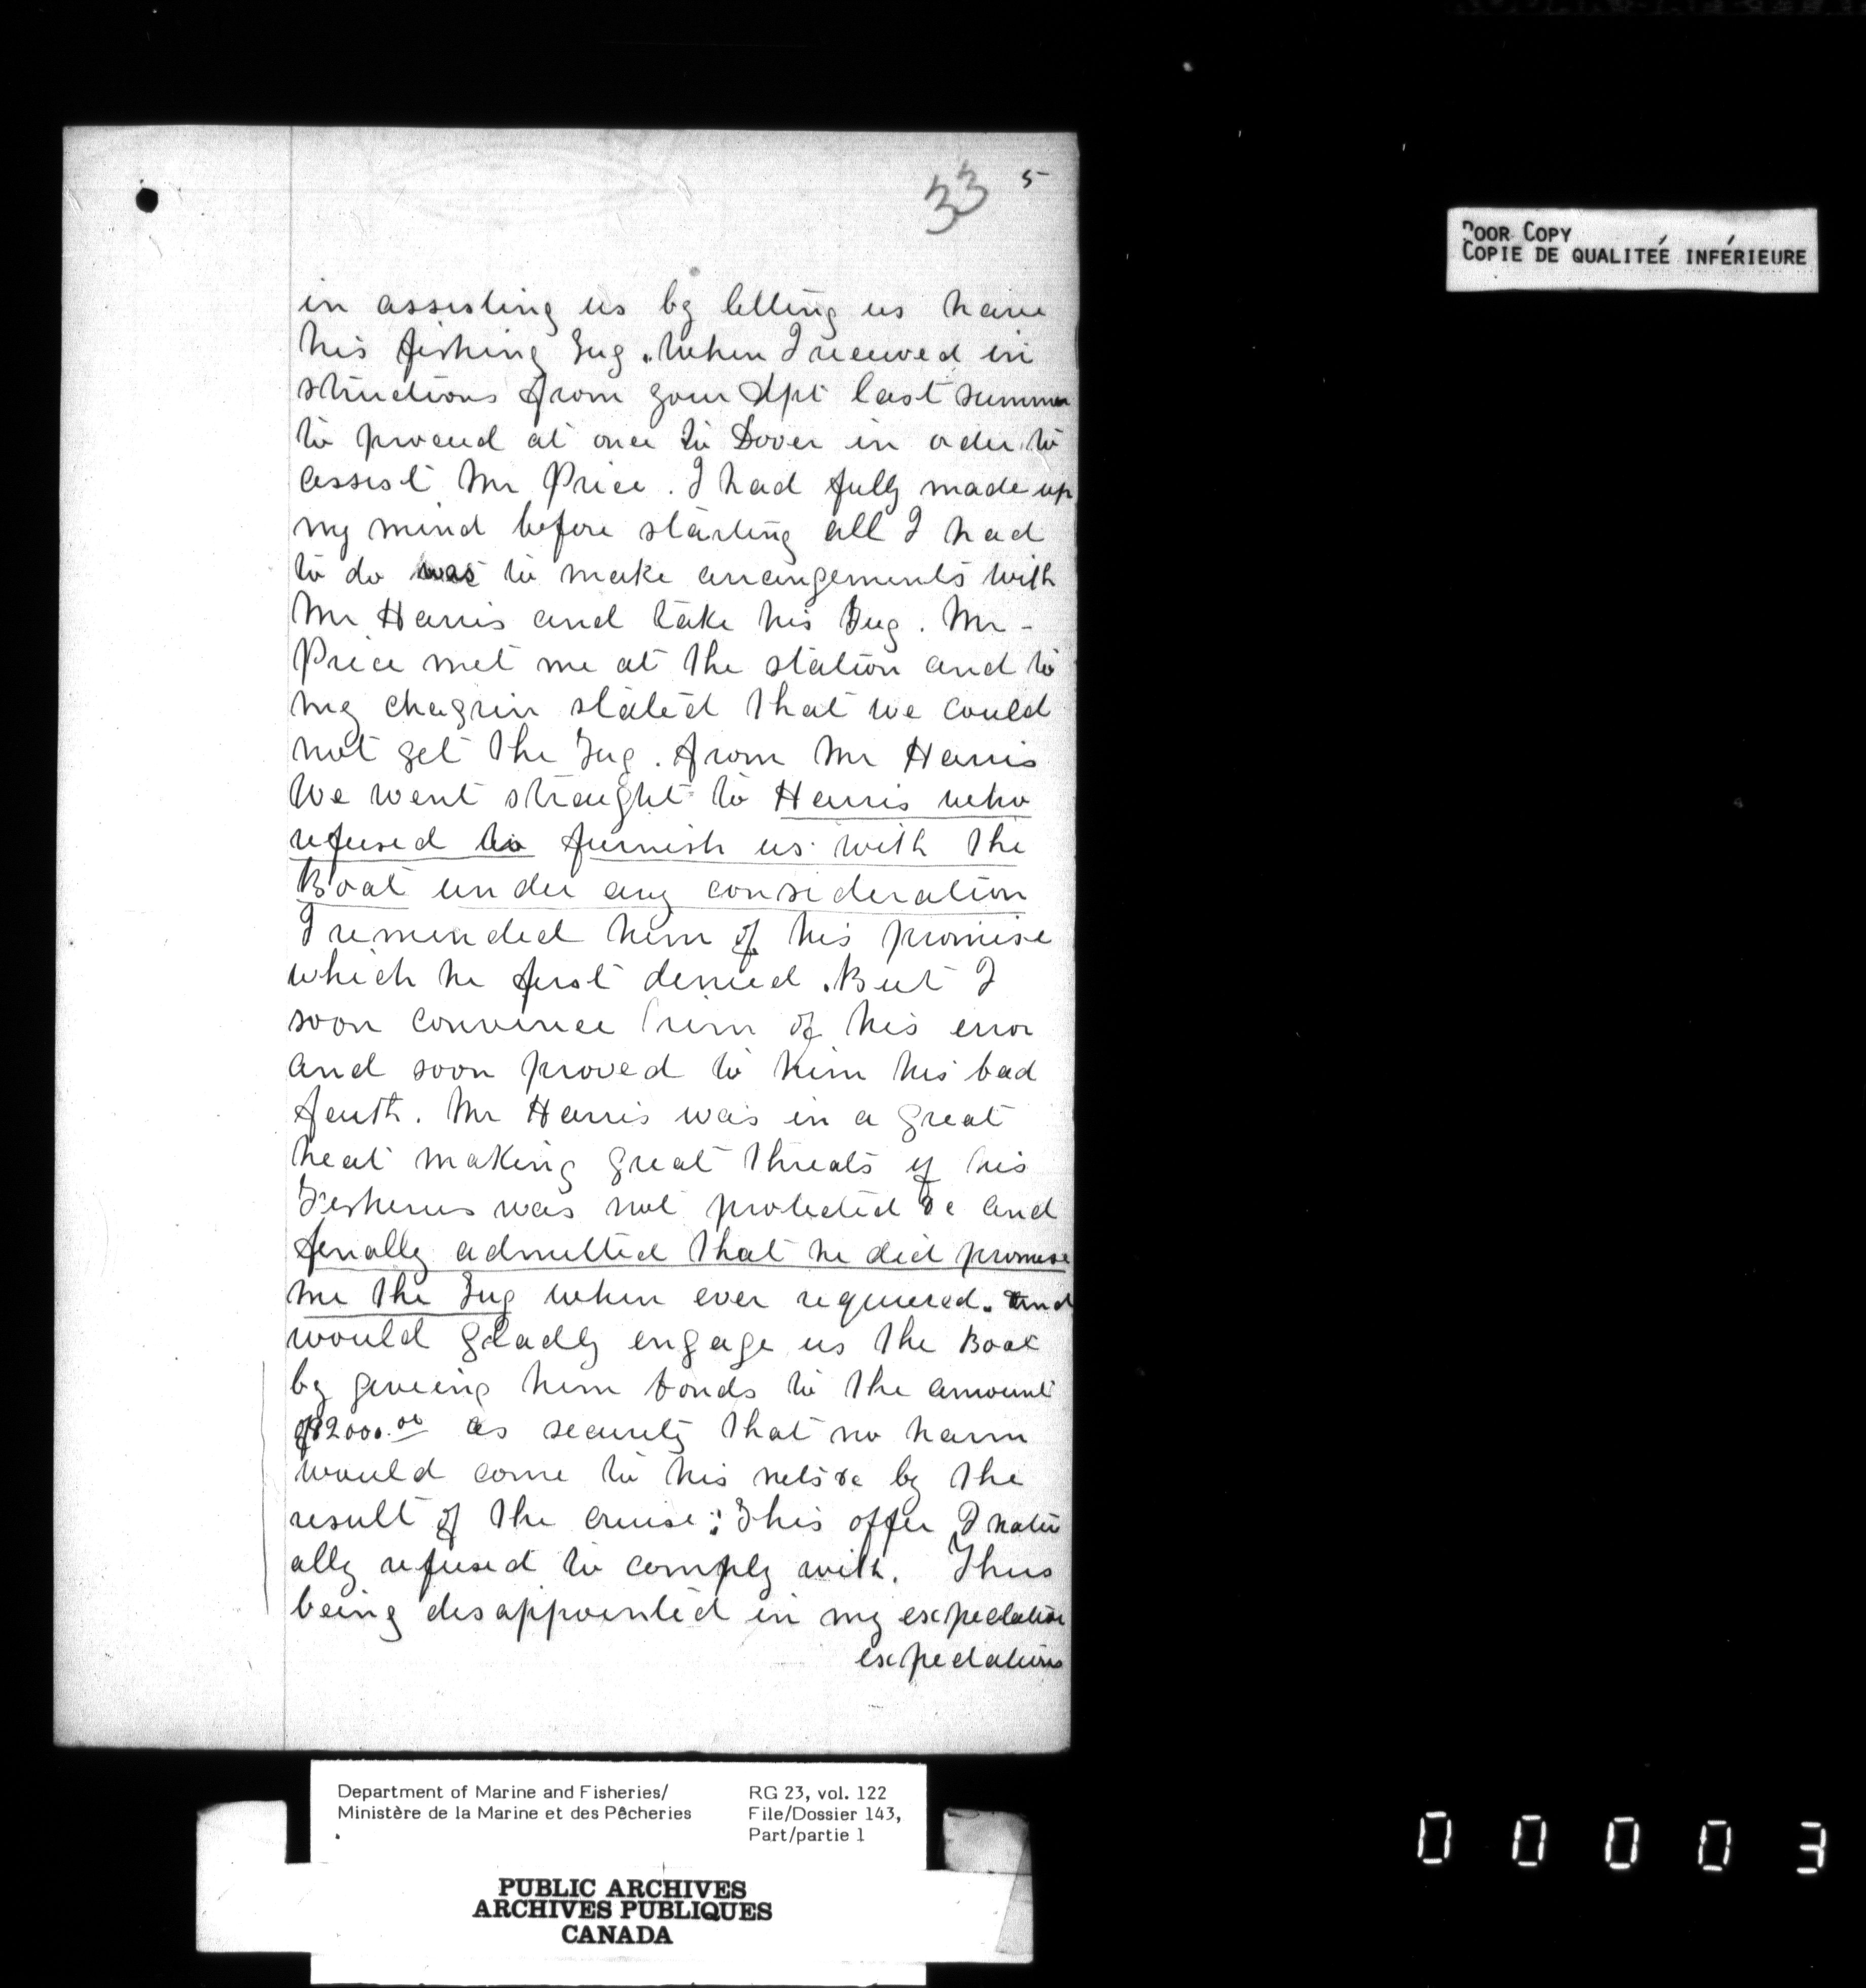 33 5
Poor Copy
Copie de qualiteé inférieure
in assisting us by letting us have
his fishing Tug. When I received in
structions from your Dpt last summer
to proceed at once to Dover in order to
assist Mr Price. I had fully made up
my mind before starting all I had
to do was to make arrangements with
Mr Harris and take his Tug. Mr -
Price met me at the station and to
my chagrin stated that we could
not get the Tug. from Mr Harris
We went straught to Harris who
refused to furnish us with the
Boat under any consideration
I reminded him of his promise
which he first denied. But I
soon convince him of his error
and soon proved to him his bad
faith. Mr Harris was in a great
heat making great threats if his
Fisheries was not protected &c and
finally admitted that he did promise
me the Tug when ever required. And
would gladly engage us the Boat
by giveing him bonds to the amount
of $2000.00 as security that no harm
would come to his nets &c by the
result of the cruise: This offer I natur
ally refused to comply with. Thus
being disappointed in my expectation
expectations
Department of Marine and Fisheries/
Ministère de la Marine et des Pêcheries
RG 23, vol. 122
File/Dossier 143,
Part/partie 1
PUBLIC ARCHIVES
ARCHIVES PUBLIQUES
CANADA
0 0 0 0 3